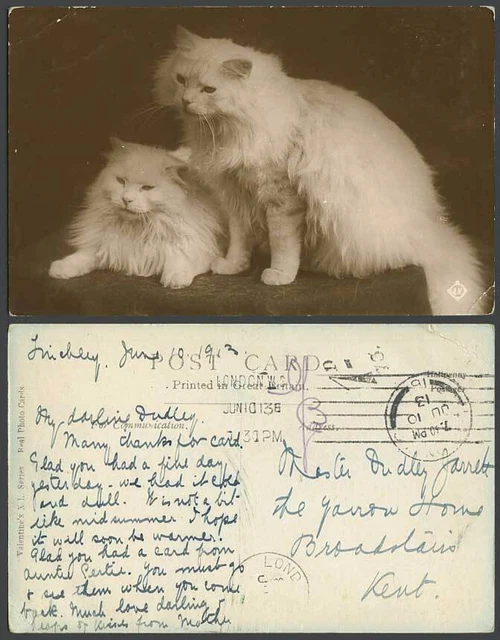 Finchley. June 10. 1913
POST CARD
Printed in Great Britain.
Halfpenny
LONDON
JUN 10 13
7.30 PM
7.10 PM
JU 10
13
Communication.
Valentine's X.L. Series. Real Photo Cards
My darling Dudley
Many thanks for card.
Glad you had a fine day
yesterday - we had it cold
and dull. It is not a bit
like midsummer. I hope
it will soon be warmer.
Glad you had a card from
Auntie Gertie. You must go
& see them when you come
back. Much love darling &
heaps of kisses from Mother
Master Dudley Jarrett
The Yarrow Home
Broadstairs
Kent.
LOND